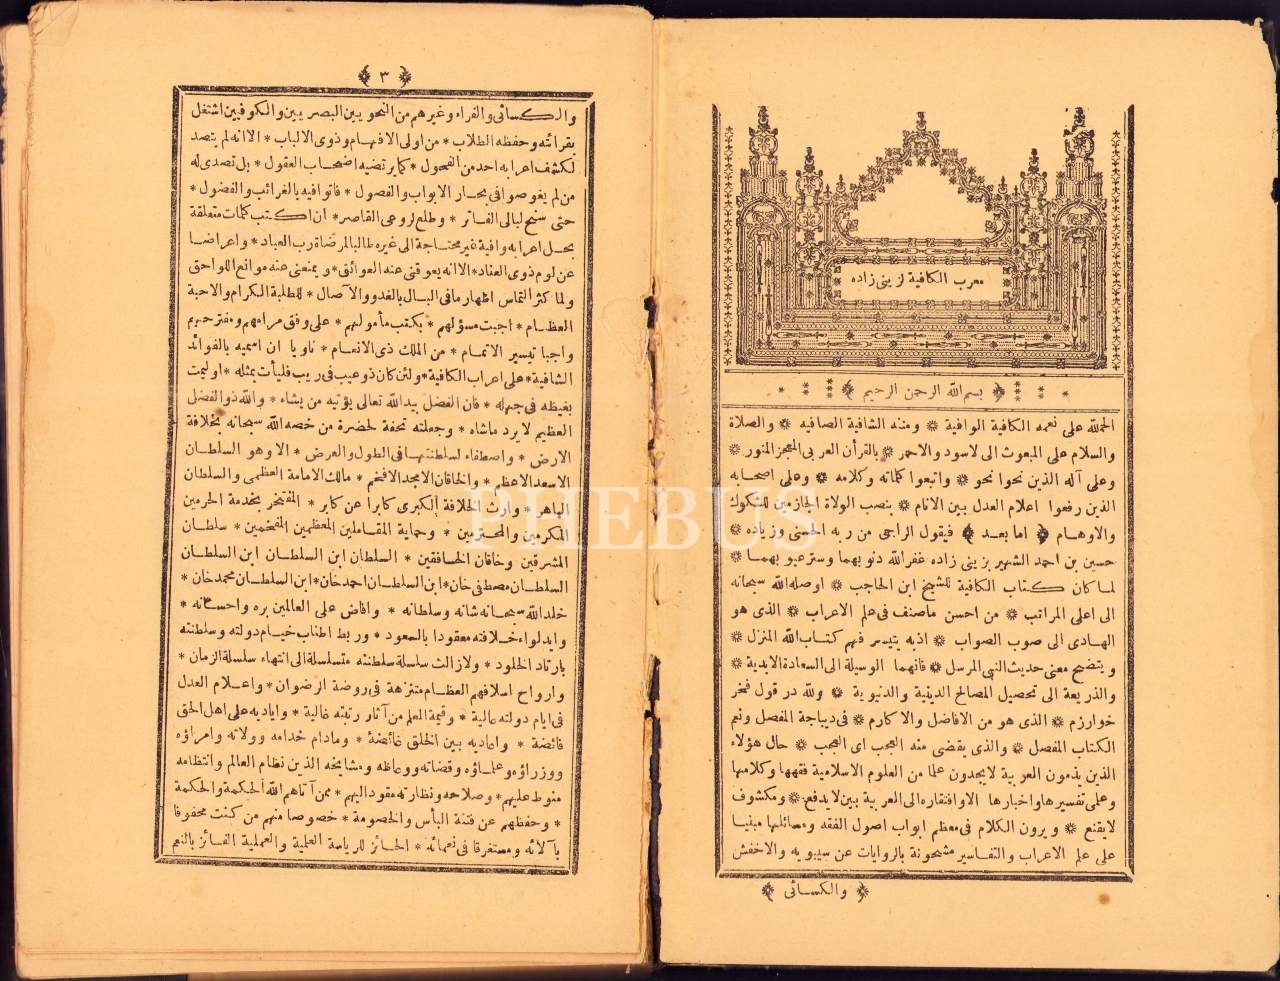 معرب الكافية لزينى زاده
بسم الله الرحمن الرحيم
الحمد لله على نعمه الكافية الوافية * ومننه الشافية الصافيه * والصلاة
والسلام على المبعوث الى لاسود والاحمر * بالقرأن العربى المعجز المنور *
وعلى آله الذين نحوا نحو * واتبعوا كلماته وكلامه * وعلى اصحابه
الذين رفعوا اعلام العدل بين الانام * بنصب الولاة الجازمين للشكوك
والاوهام ﴿ اما بعد ﴾ فيقول الراجى من ربه الحسنى وزياده *
حسين بن احمد الشهير بزينى زاده غفر الله ذنوبهما وستر عيوبهما *
لما كان كتاب الكافية للشيخ ابن الحاجب * اوصله الله سبحانه
الى اعلى المراتب * من احسن ماصنف فى علم الاعراب * الذى هو
الهادى الى صوب الصواب * اذبه يتيسر فهم كتاب الله المنزل *
ويتضح معنى حديث النبى المرسل * فانهما الوسيلة الى السعادة الابدية *
والذريعة الى تحصيل المصالح الدينية والدنيوية * ولله در قول فخر
خوارزم * الذى هو من الافاضل والاكارم * فى ديباجة المفصل ونعم
الكتاب المفصل * والذى يقضى منه العجب اى العجب * حال هؤلاء
الذين يذمون العربية لايجدون علما من العلوم الاسلامية فقهها وكلامها
وعلمى تفسيرها واخبارها الاوافتقاره الى العربية بين لايدفع * ومكشوف
لايقنع * ويرون الكلام فى معظم ابواب اصول الفقه ومسائلها مبنيا
على علم الاعراب والتفاسير مشحونة بالروايات عن سيبويه والاخفش
﴿ والكسائى ﴾
﴿ ٣ ﴾
والكسائى والفراء وغيرهم من النحويين البصريين والكوفيين اشتغل
بقرائه وحفظه الطلاب * من اولى الافهام وذوى الالباب * الاانه لم يتصد
لكشف اعرابه احد من الفحول * كما يرتضيه اصحاب العقول * بل تصدى له
من لم يغوصوا فى بحار الابواب والفصول * فاتوا فيه بالغرائب والفضول *
حتى سنح لبالى الفاتر * وطلع لروعى القاصر * ان اكتب كلمات متعلقة
بحل اعرابه وافية غير محتاجة الى غيره طالبا لمرضاة رب العباد * واعراضا
عن لوم ذوى العناد * الاانه يعوقنى عنه العوائق * ويمنعنى عنه موانع اللواحق
ولما كثر التماس اظهار مافى البال بالغدو والآصال * للطلبة الكرام والاحبة
العظام * اجبت مسؤلهم * بكتب مأمولهم * على وفق مرامهم ومقترحهم
واجبا تيسير الاتمام * من الملك ذى الانعام * ناويا ان اسميه بالفوائد
الشافية * على اعراب الكافية * ولئن كان ذو عيب فى ريب فليأت بمثله * اوليمت
بغيظه فى جهله * فان الفضل بيد الله تعالى يؤتيه من يشاء * والله ذو الفضل
العظيم لايرد ماشاه * وجعلته تحفة لحضرة من خصه الله سبحانه بخلافة
الارض * واصطفاه لسلطنتها فى الطول والعرض * الا وهو السلطان
الاسعد الاعظم * والخاقان الامجد الافخم * مالك الامامة العظمى والسلطان
الباهر * وارث الخلافة الكبرى كابرا عن كابر * المفتخر بخدمة الحرمين
المكرمين والمحترمين * وحماية المقاملين المعظمين المفخمين * سلطان
المشرقين وخاقان الخافقين * السلطان ابن السلطان ابن السلطان
السلطان مصطفى خان * ابن السلطان احمد خان * ابن السلطان محمد خان *
خلد الله سبحانه شانه وسلطانه * وافاض على العالمين بره واحسانه *
وايد لواء خلافته معقودا بالسعود * وربط اطناب خيام دولته وسلطنته
باوتاد الخلود * ولازالت سلسلة سلطنته متسلسلة الى انتهاء سلسلة الزمان *
وارواح اسلافهم العظام متنزهة فى روضة الرضوان * واعلام العدل
فى ايام دولته عالية * وقيمة العلم من آثار رتبته غالية * واياديه على اهل الحق
فائضة * واعاديه بين الخلق غائضة * ومادام خدامه وولاته وامراؤه
ووزراؤه وعلماؤه وقضاته ووعاظه ومشايخه الذين نظام العالم وانتظامه
منوط عليهم * وصلاحه ونظارته مقود اليهم * ممن آتاهم الله الحكمة والحكمة
* وحفظهم عن فتنة البأس والخصومة * خصوصا منهم من كنت محفوفا
بآلائه ومستغرقا فى نعمائه * الحائز للرياسة العلمية والعملية الفائز بالنعيم
PHEBUS